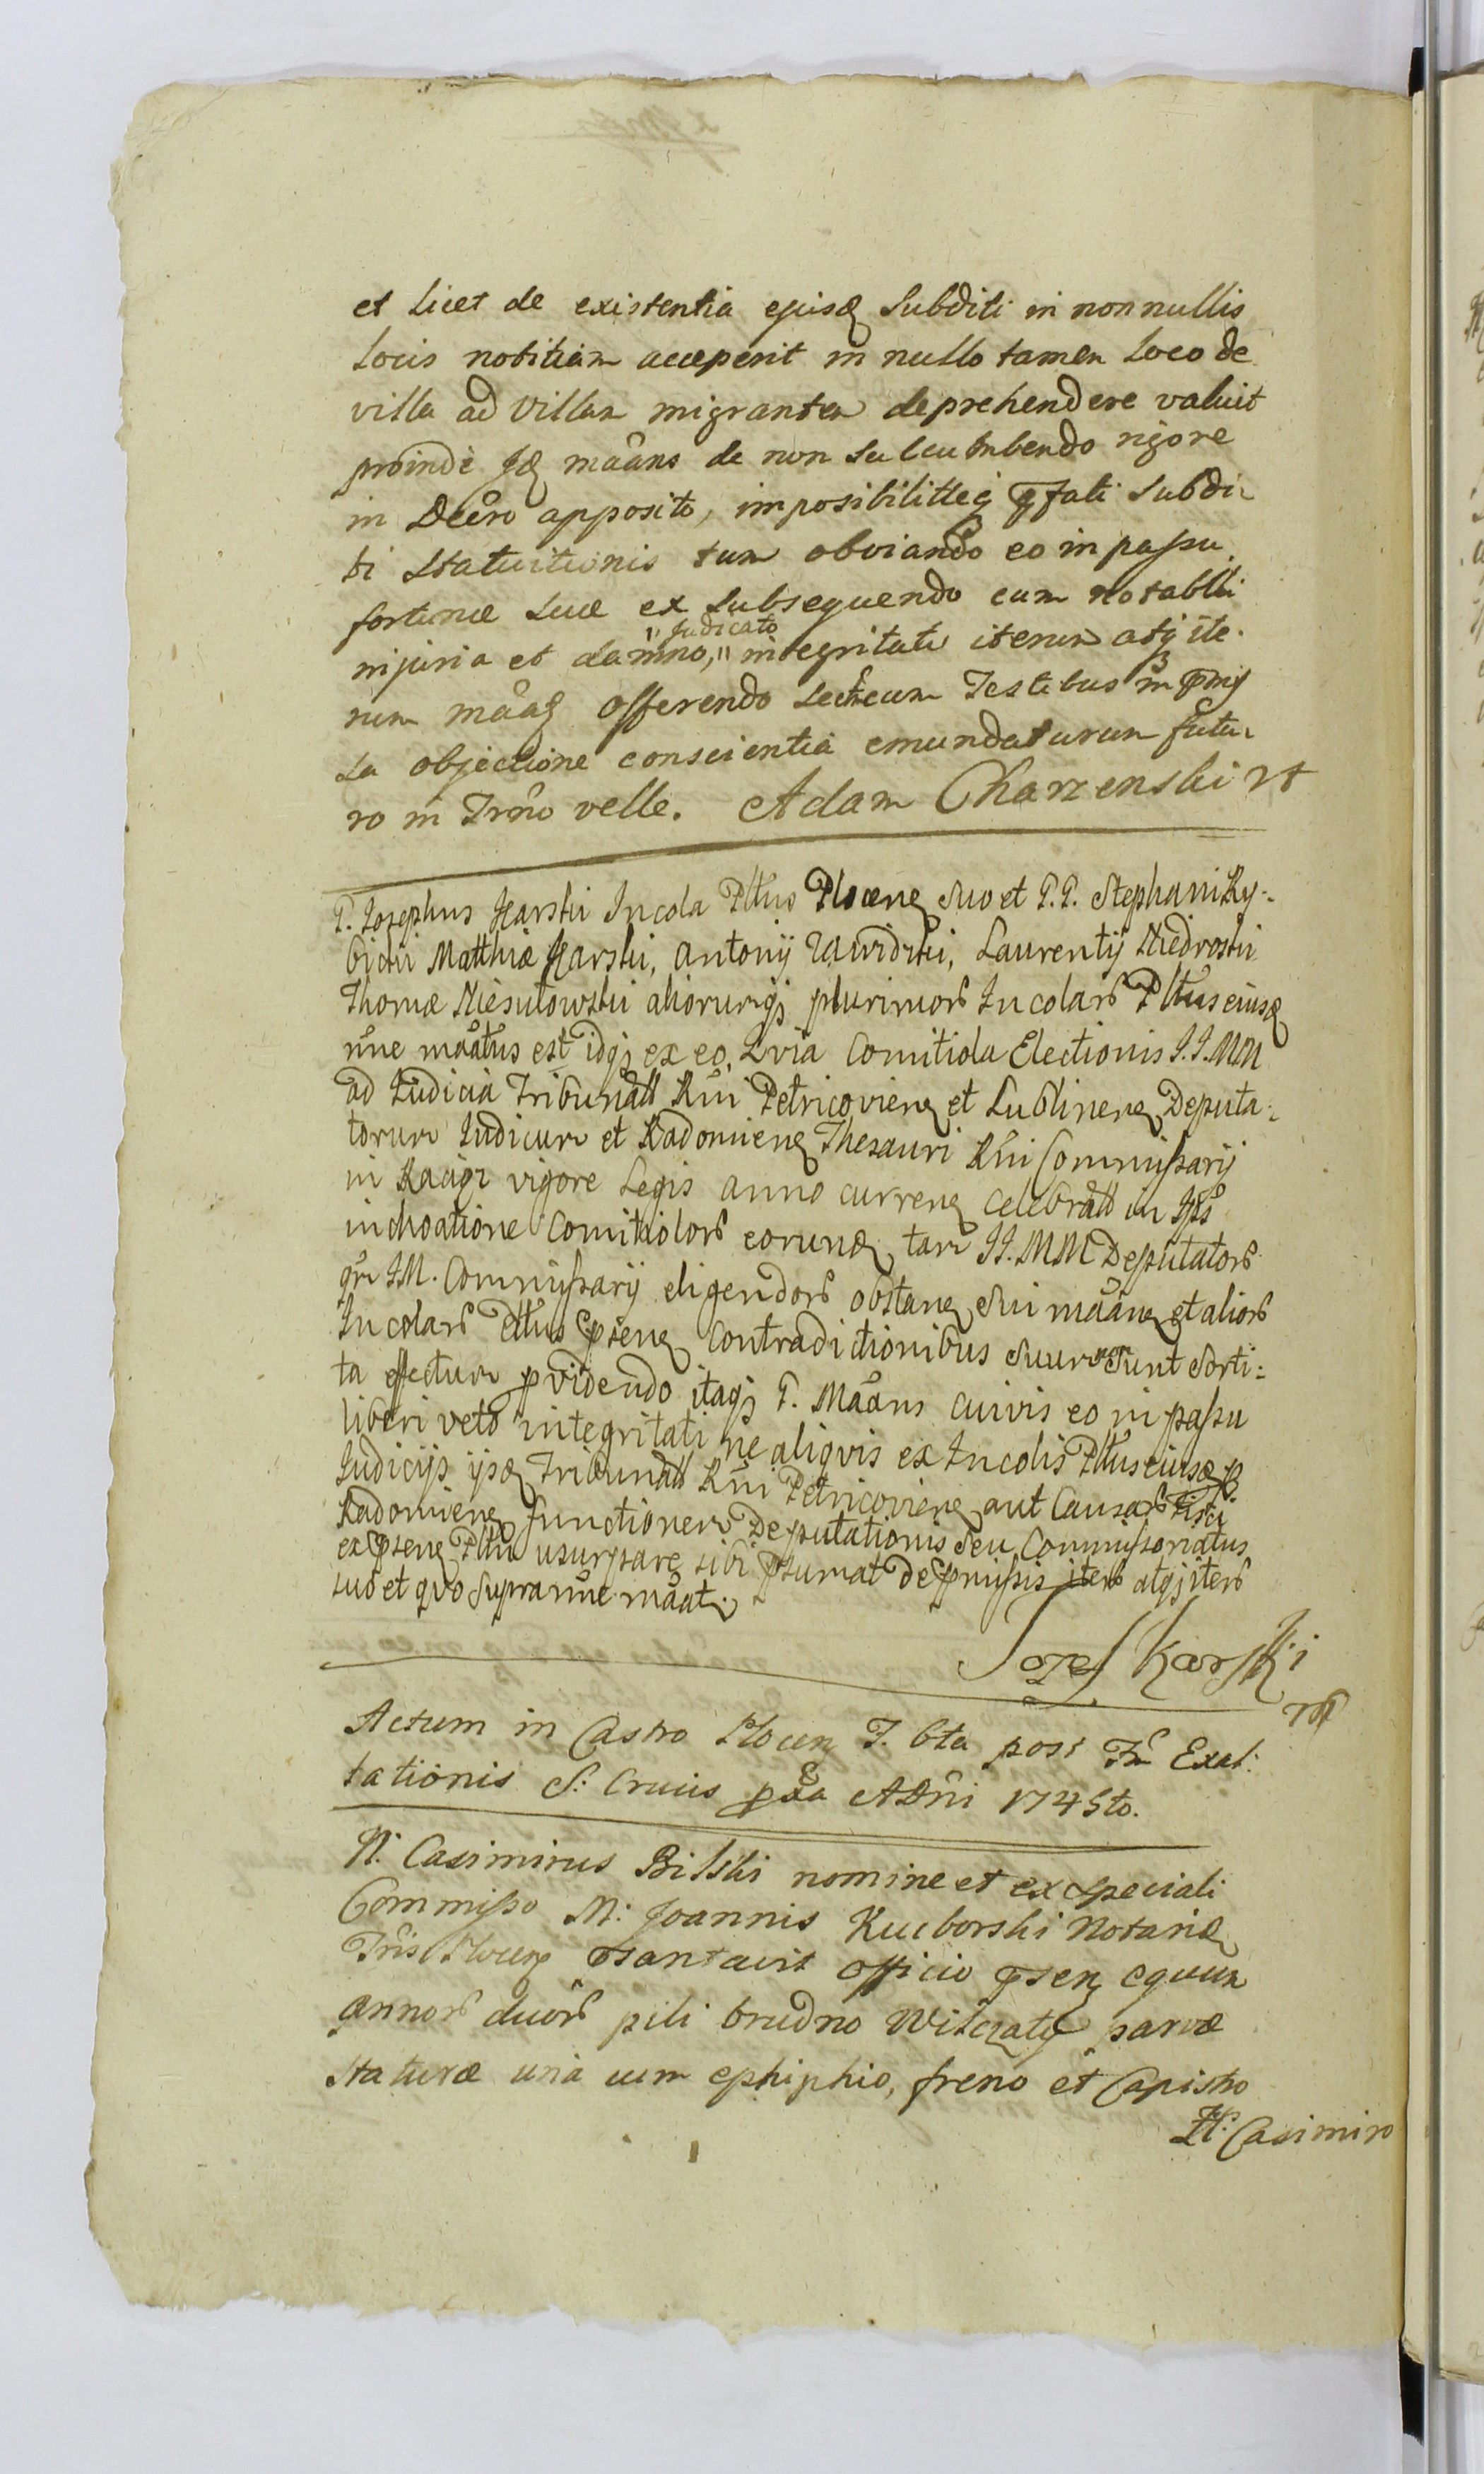 et licet de existentia ejusd Subditi in nonnullis
Locis notitiam acceperit in nullo tamen Loco de
villa ad villam migrantem deprehendere valuit
proinde Id maans de non succumbendo rigore
in Decro apposito, imposibilitteq pfati Subdi-
ti Statuitionis tum obviando eo in passu
fortunæ suæ ex subsequendo cum notabli
injuria et damno, " Judicato
" integritati iterum atq ite-
rum maaq offerendo se cum Testibus in pmis
sa objectione conscientia emundaturum futu-
ro in Trno velle. Adam Charzenski
P. Josephus Karski Incola Pltus Plocenq Suo et P.P. Stephani Ry-
bicki Matthiæ Karski, Antonij Zawidzki, Laurentij Niedroski
Thomæ Niesułowski aliorumqj plurimor Incolar Pltus eiusd
nne maatus est idqj ex eo, Qvia Comitiola Electionis I.I.MM
ad Iudicia Tribunall Rni Petricovienq et Lublinenq Deputa-
torum Iudicum et Radomienq Thesauri Rni Commissarij
in Raciąz vigore Legis anno currenq celebrall in Ips
inchoatione Comitiolor eorund, tam II.MM Deputator
qm IM. Commissarij eligendor obstanq Sui maanq et alior
Incolar Pltus psenq Contradictionibus Suum non Sunt Sorti-
ta effectum pvidendo itaqj P. Maans cuivis eo in passu
liberi veto integritati ne aliqvis ex Incolis Pltus eiusd
Iudicijs ijsd Tribunall Rni Petricovienq aut Causar Fisci
Radomienq functionem Deputationis Seu Commissoriatus
ex psenq Pltu usurpare sibi psumat de pmissis iter atqj iter
suo et qvo Supra nne maat.
Jozef Karski
mp
Actum in Castro Plocen F. 6ta post Fm Exal-
tationis S. Crucis pxa ADni 1745to.
N. Casimirus Bilski nomine et ex speciali
Commisso M. Joannis Kuchorski Notarij
Tris Plocen psantavit officio psenq equum
annor duor pili brudno Wilczaty parvæ
Staturæ una cum ephiphio, freno et Capistro
N. Casimiro